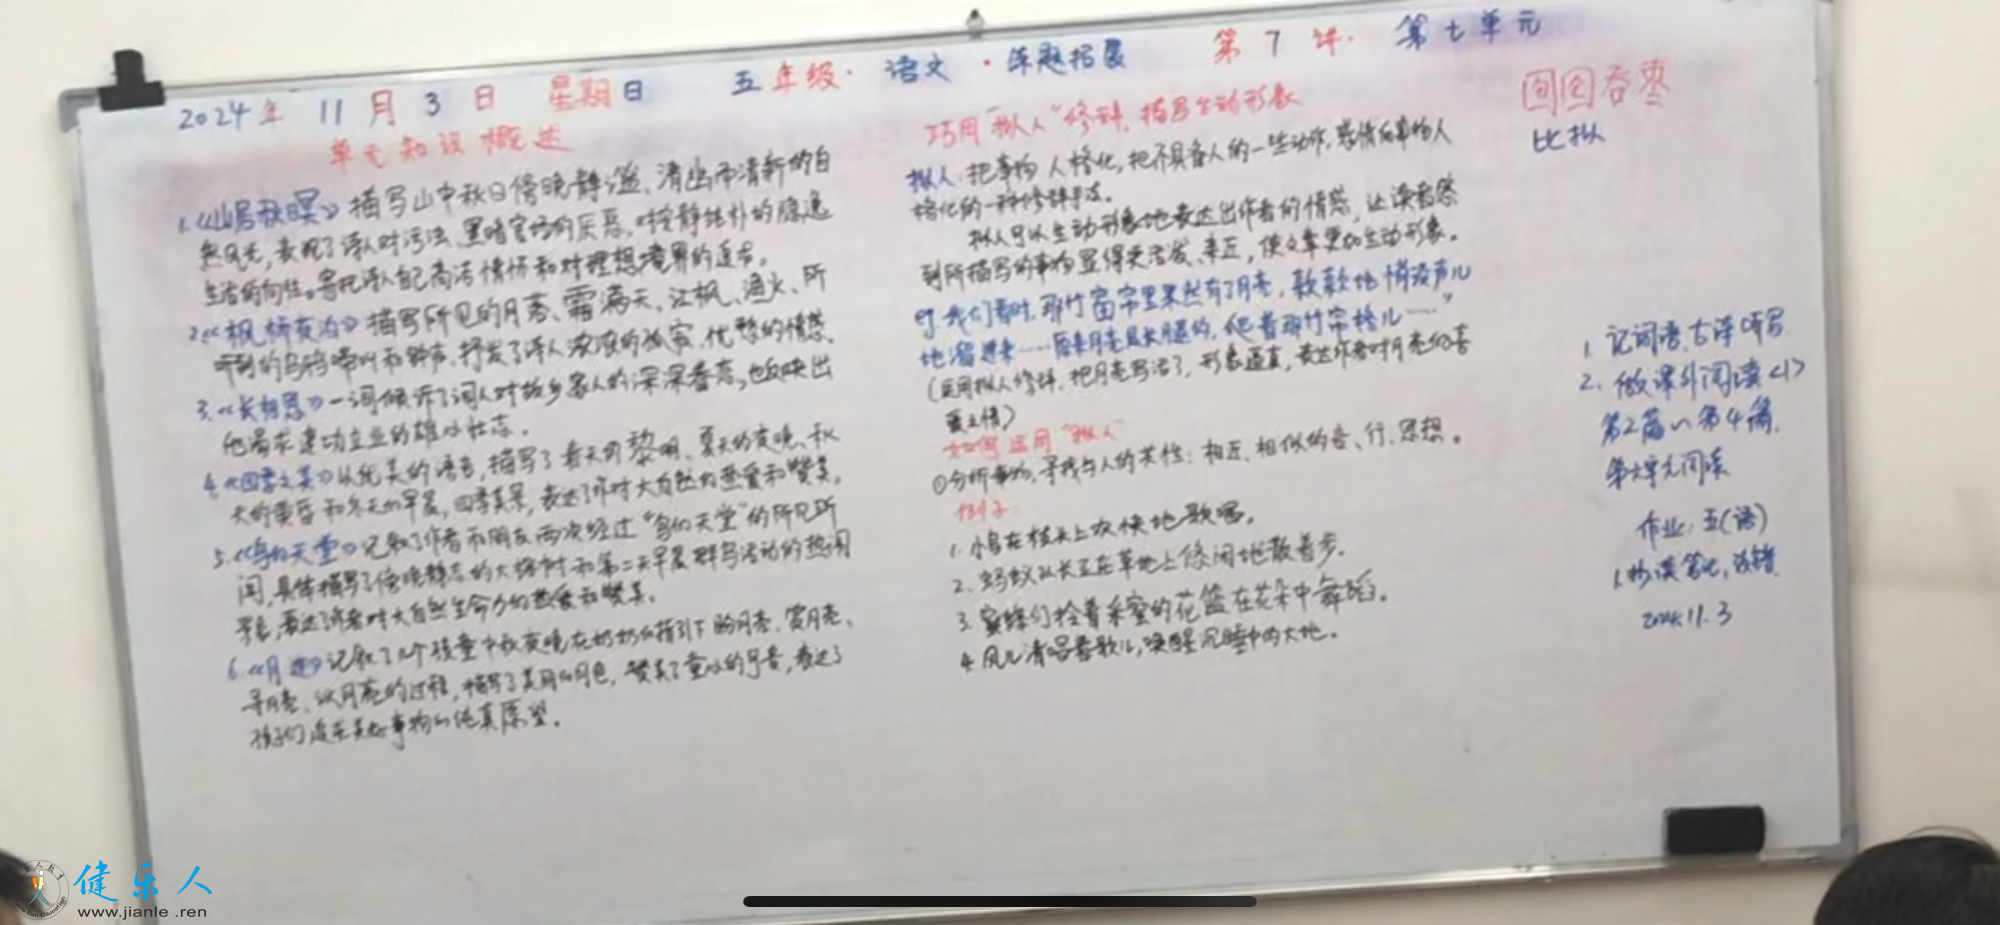 2024年 11月3日 星期日 五年级·语文·单题拓展 第7讲·第七单元
单元知识概述
1.《山居秋暝》描写山中秋日傍晚静谧、清幽而清新的自
然风光,表现了诗人对污浊、黑暗官场的厌恶,对安静纯朴的隐逸
生活的向往。寄托诗人自己高洁情怀和对理想境界的追求。
2.《枫桥夜泊》描写所见的月落、霜满天、江枫、渔火、所
听到的乌鸦啼叫和钟声,抒发了诗人浓浓的孤寂、忧愁的情感。
3.《长相思》一词倾诉了词人对故乡家人的深深眷恋,也反映出
他渴求建功立业的雄心壮志。
4.《四季之美》以优美的语言,描写了春天的黎明、夏天的夜晚、秋
天的黄昏和冬天的早晨,四季美景,表达了作对大自然的热爱和赞美。
5.《鸟的天堂》记叙了作者和朋友两次经过“鸟的天堂”的所见所
闻,具体描写了傍晚静态的大榕树和第二天早晨群鸟活动的热闹
景象,表达了作者对大自然生命力的热爱和赞美。
6.《月迹》记叙了几个孩童中秋夜晚在奶奶的指引下盼月亮、赏月亮、
寻月亮、议月亮的过程,描写了美丽的月色,赞美了童心的,表达了
孩子们追求美好事物的纯真愿望。
巧用“拟人”修辞,描写生动形象
拟人:把事物人格化,把不具备人的一些动作,感情的事物人
格化的一种修辞手法。
拟人可以生动形象地表达出作者的情感,让读者感
到所描写的事物显得更活泼、亲近,使文章更加生动形象。
我们看时,那竹窗帘里果然有了月亮,款款地悄没声儿
地溜进来……原来月亮是长腿的,爬着那竹帘格儿……”
(运用拟人修辞,把月亮写活了,形象逼真,表达作者对月亮的喜
爱之情)
如何运用“拟人”
①分析事物,寻找与人的共性:相近、相似的音、行、思想。
例子:
1.小鸟在枝头上欢快地歌唱。
2.蚂蚁队长正在草地上悠闲地散着步。
3.蜜蜂们拎着采蜜的花篮在花朵中舞蹈。
4.风儿清唱着歌儿,唤醒沉睡中的大地。
囫囵吞枣
比拟
1.记词语、古诗听写
2.做课外阅读<1>
第2篇~第4篇
第六单元阅读
作业:五(语)
1.抄读笔记,改错
2024.11.3
健乐人
www.jianle.ren